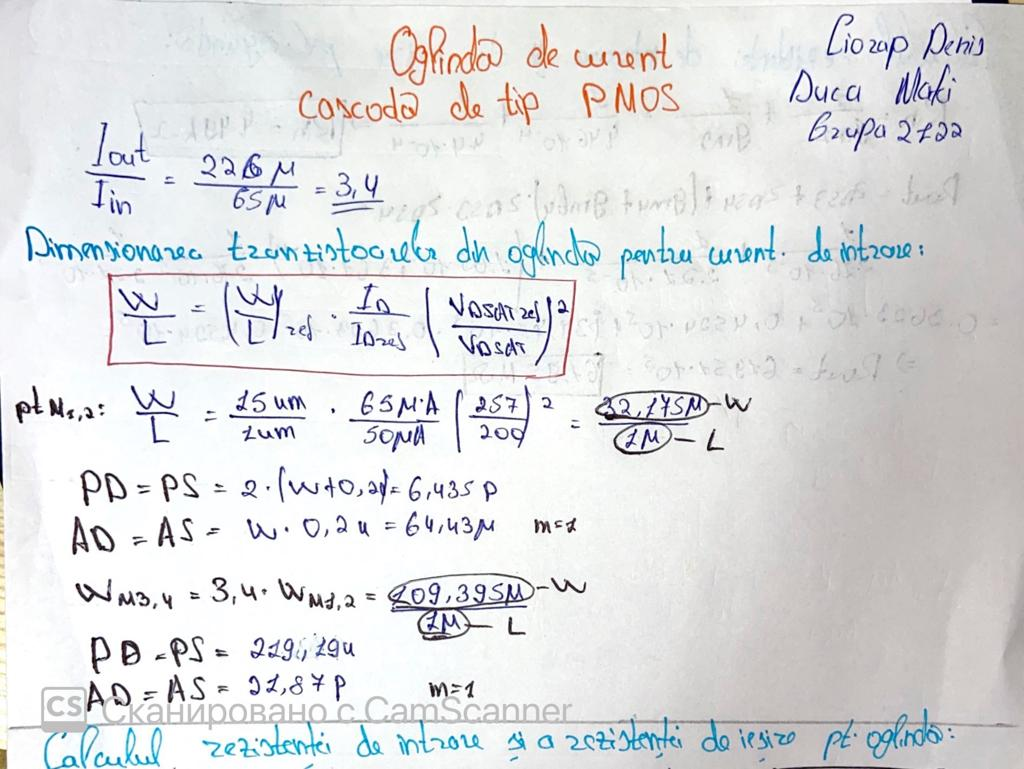 Oglindă de curent
Cascodă de tip PMOS
Ciorap Denis
Duca Maki
Grupa 2122
Iout / Iin = 226µ / 65µ = 3,4
Dimensionarea tranzistoarelor din oglindă pentru curent. de intrare:
W/L = (W/L)ref · ID/IDref (VDSAT ref / VDSAT)²
pt M1,2: W/L = 15um/1um · 65µA/50µA (257/200)² = 32,175µ - W / 1µ - L
PD = PS = 2·(W+0,2u) = 6,435p
AD = AS = W·0,2u = 64,43µ m=1
WM3,4 = 3,4 · WM1,2 = 109,395µ - W / 1µ - L
PD = PS = 219,19u
AD = AS = 21,87p m=1
CS Сканировано с CamScanner
Calculul rezistenței de intrare și a rezistenței de ieșire pt. oglindă: